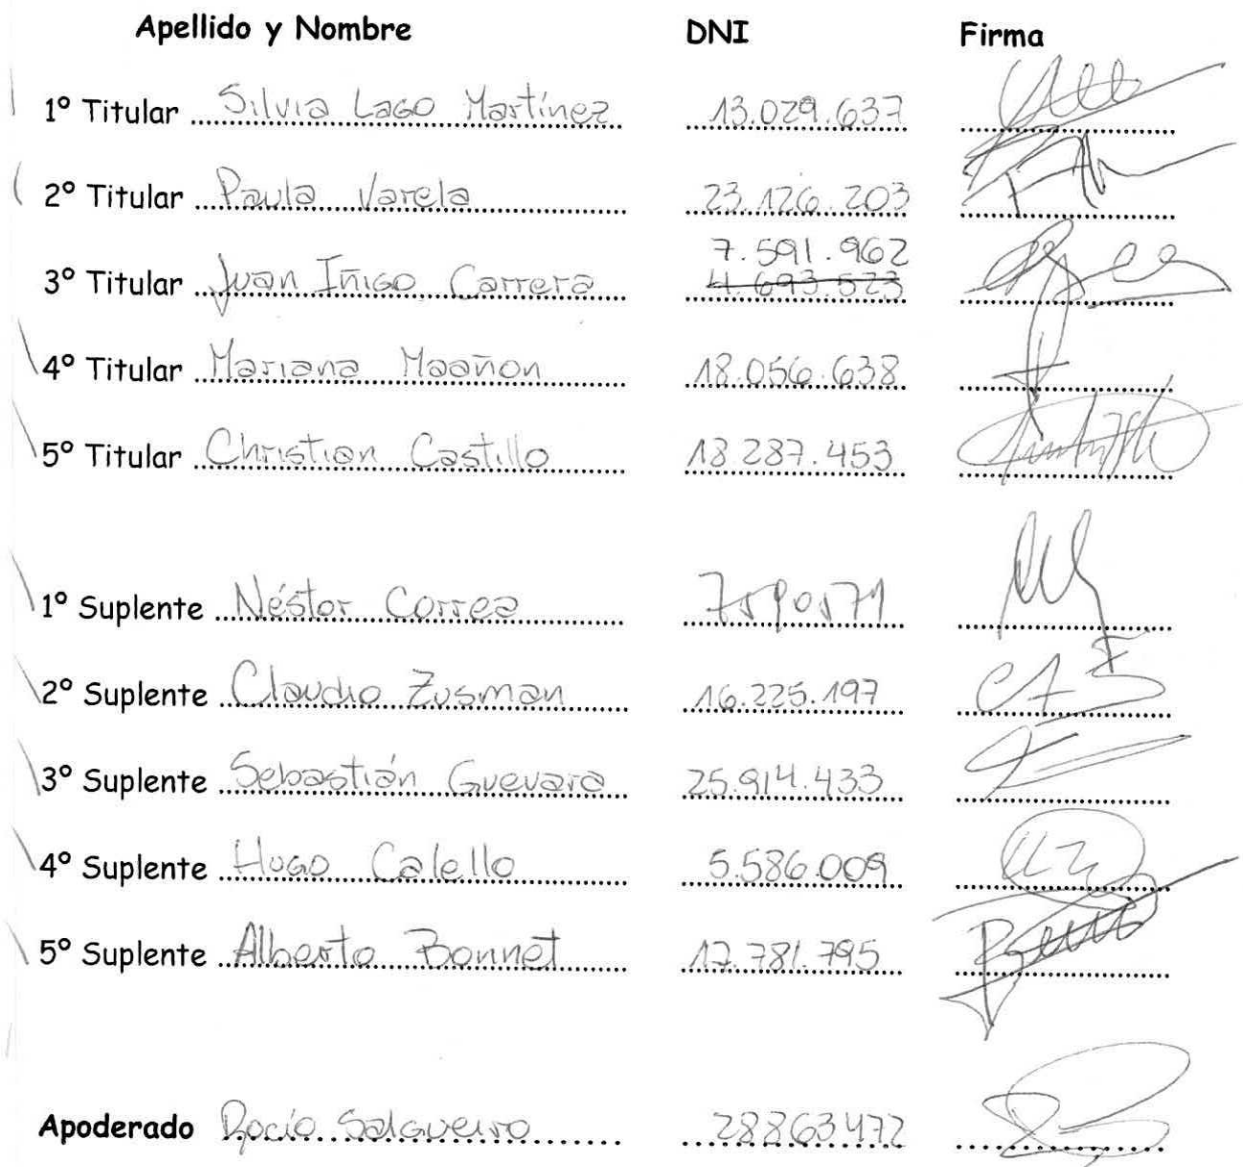 Apellido y Nombre DNI Firma
1º Titular Silvia Lago Martínez 13.029.637
2º Titular Paula Varela 23.126.203
7.591.962
3º Titular Juan Iñigo Carrera 4.693.523
4º Titular Mariana Maañon 18.056.638
5º Titular Christian Castillo 18.287.453
1º Suplente Néstor Correa
2º Suplente Claudio Zusman 16.225.197
3º Suplente Sebastián Guevara 25.914.433
4º Suplente Hugo Calello 5.586.009
5º Suplente Alberto Bonnet 17.781.795
Apoderado Rocío Salgueiro 28863472